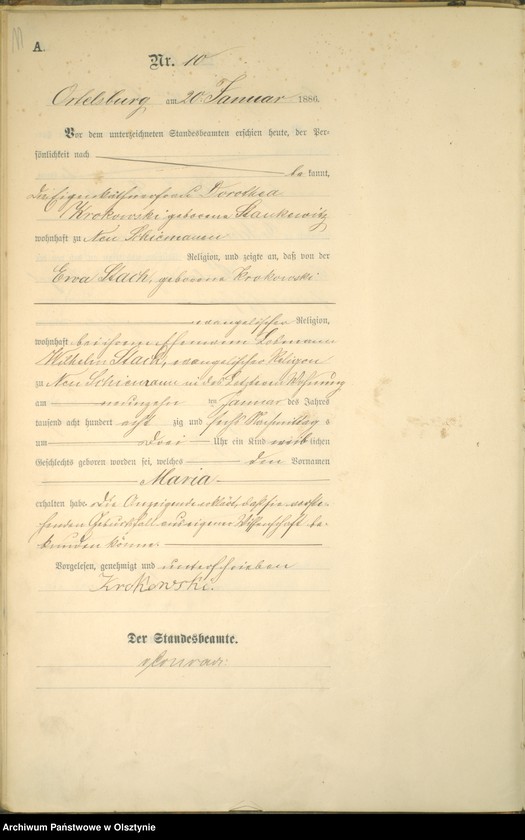 A.
Nr. 10
Ortelsburg am 20 Januar 1886.
Vor dem unterzeichneten Standesbeamten erschien heute, der Per-
sönlichkeit nach
be kannt,
die Eigenkäthnerfrau Dorothea
Krokowski geborene Stankewitz
wohnhaft zu Neu Schiemanen
Religion, und zeigte an, daß von der
Ewa Stach, geborene Krokowski
evangelischer Religion,
wohnhaft bei ihrem Ehemann Losmann
Wilhelm Stach, evangelischer Religion
zu Neu Schiemanen in des Letzteren Wohnung
am neunzehn ten Januar des Jahres
tausend acht hundert acht zig und sechs Nachmittags
um drei Uhr ein Kind weiblichen
Geschlechts geboren worden sei, welches den Vornamen
Maria
erhalten habe. Die Anzeigende erklärt, daß sie vorste-
henden Geburtsfall aus eigener Wissenschaft be-
kunden könne.
Vorgelesen, genehmigt und unterschrieben
Krokowski.
Der Standesbeamte.
Archiwum Państwowe w Olsztynie